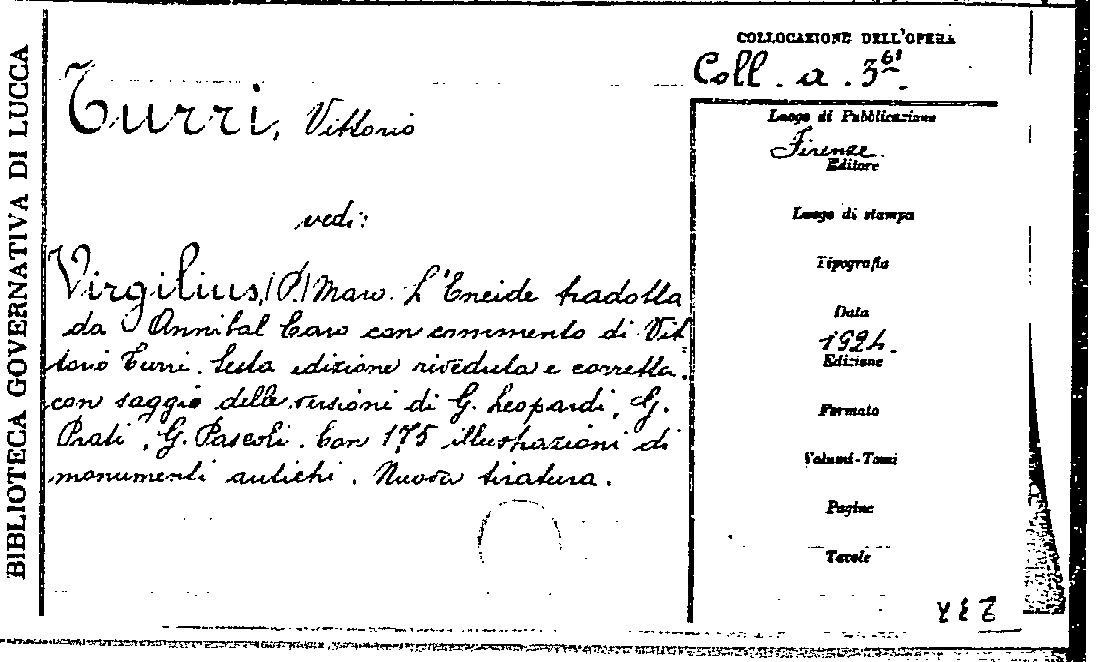 BIBLIOTECA GOVERNATIVA DI LUCCA
COLLOCAZIONE DELL'OPERA
Coll. a. 3⁶¹.
Turri, Vittorio
vedi:
Virgilius (P.) Maro. L'Eneide tradotta
da Annibal Caro con commento di Vit
torio Turri. Sesta edizione riveduta e corretta.
con saggio delle versioni di G. Leopardi, G.
Prati, G. Pascoli. Con 175 illustrazioni di
monumenti antichi. Nuova tiratura.
Luogo di Pubblicazione
Firenze.
Editore
Luogo di stampa
Tipografia
Data
1924.
Edizione
Formato
Volumi-Tomi
Pagine
Tavole